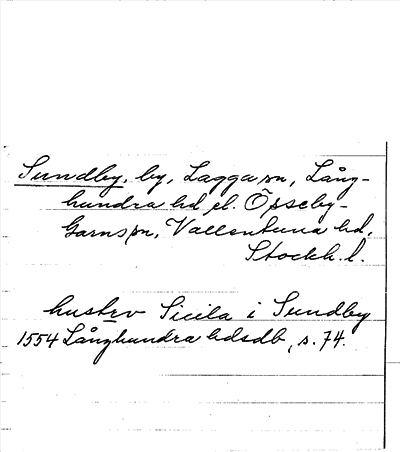 Sundby, by, Lagga sn, Lång-
hundra hd el. Össeby-
Garns sn, Vallentuna hd,
Stockh. l.
hustrv Sicila i Sundby
1554 Långhundra hdsdb, s. 74.